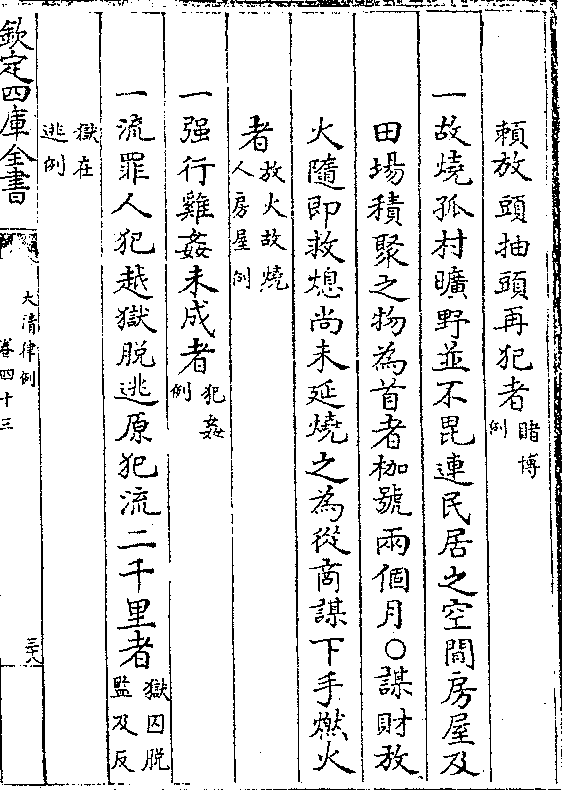 賴放頭抽頭再犯者賭博例
一故燒孤村曠野並不毘連民居之空閒房屋及
田場積聚之物為首者枷號兩個月○謀財放
火隨即救熄尚未延燒之為從商謀下手燃火
者放火故燒人房屋例
一强行雞姦未成者犯姦例
一流罪人犯越獄脱逃原犯流二千里者獄囚脱監及反
獄在逃例
欽定四庫全書
大清律例
卷四十三
三六